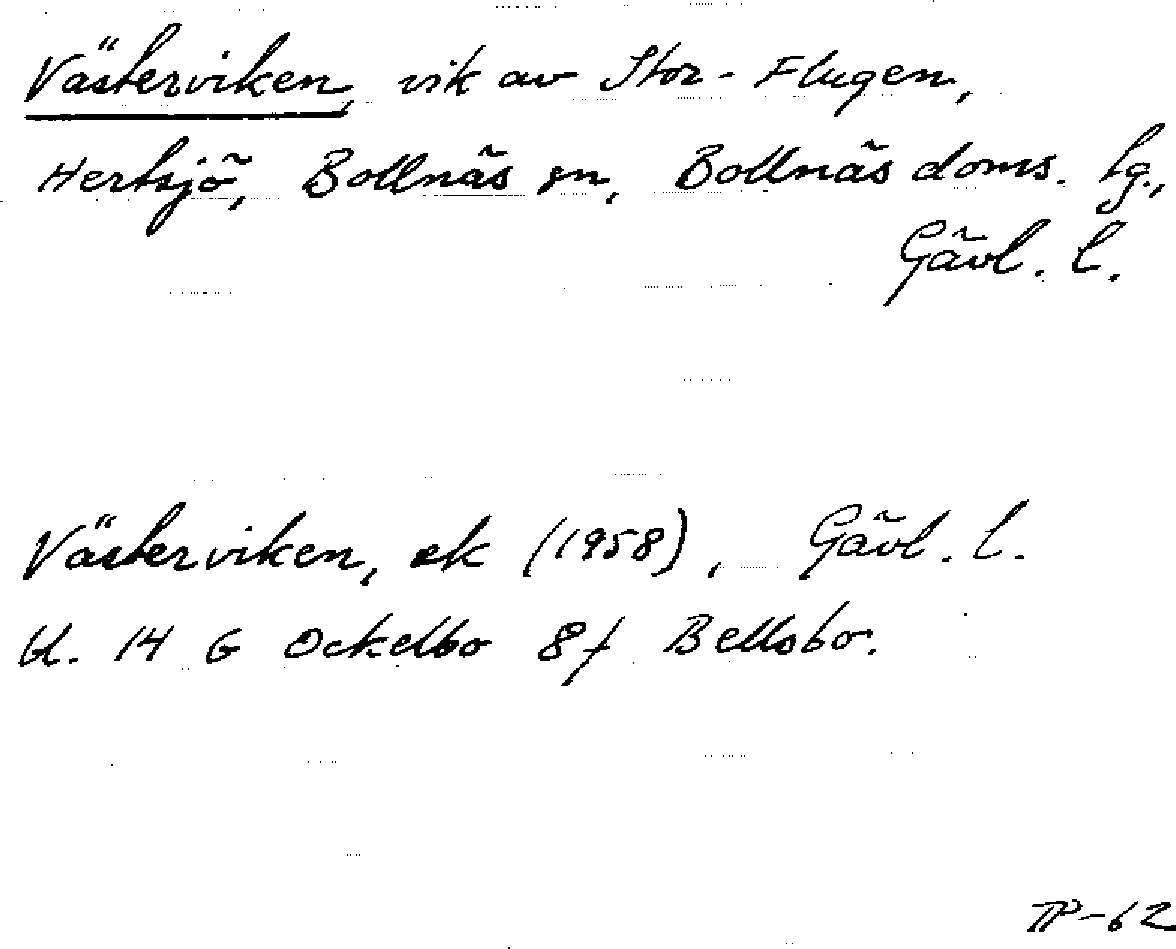 Västerviken, vik av Stor-Flugen,
Hertsjö, Bollnäs sn, Bollnäs doms. hg.,
Gävl. l.
Västerviken, ek (1958), Gävl. l.
bl. 14 G Ockelbo 8f Bellsbo.
TP-62